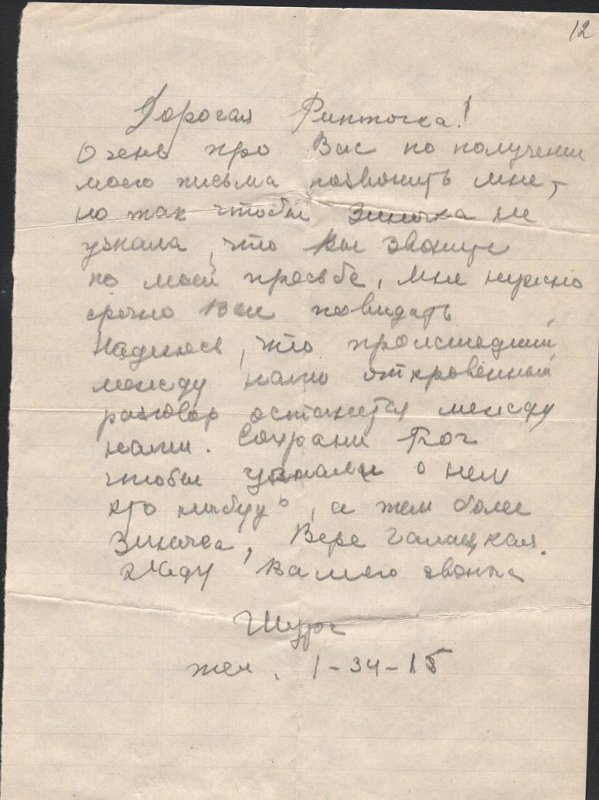 12
Дорогая Риточка!
Очень про Вас по получении
моего письма позвонить мне,
но так чтобы Зиночка не
узнала, что Вы звоните
по моей просьбе, мне нужно
срочно Вас повидать
Надеюсь, что происшедший
между нами откровенный
разговор останется между
нами. Сохрани Бог
чтобы узнали о нем
кто нибудь, а тем более
Зиночка, Вера Галацкая.
Жду Вашего звонка
Шура
тел. 1-34-15